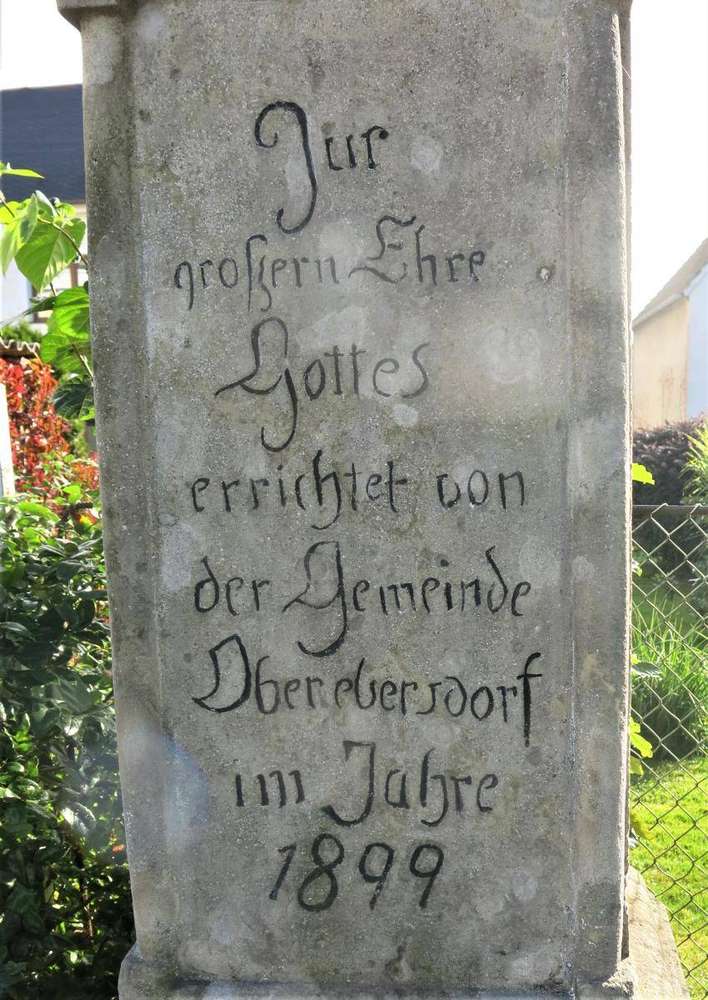 Zur
großern Ehre
Gottes
errichtet von
der Gemeinde
Oberebersdorf
im Jahre
1899